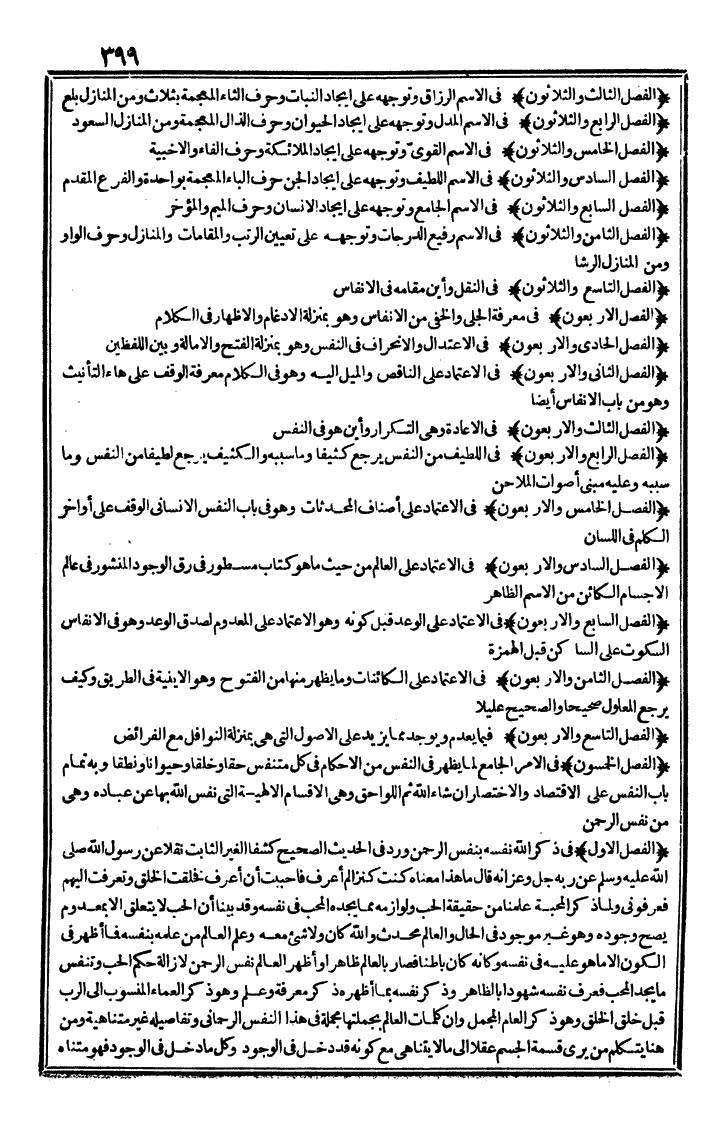 ٣٩٩
﴿الفصل الثالث والثلاثون﴾ فى الاسم الرزاق وتوجهه على ايجاد النبات وحرف الثاء المعجمة بثلاث ومن المنازل بلع
﴿الفصل الرابع والثلاثون﴾ فى الاسم المذل وتوجهه على ايجاد الحيوان وحرف الذال المعجمة ومن المنازل السعود
﴿الفصل الخامس والثلاثون﴾ فى الاسم القوىّ وتوجهه على ايجاد الملائكة وحرف الفاء والاخبية
﴿الفصل السادس والثلاثون﴾ فى الاسم اللطيف وتوجهه على ايجاد الجن حرف الباء المعجمة بواحدة والفرع المقدم
﴿الفصل السابع والثلاثون﴾ فى الاسم الجامع وتوجهه على ايجاد الانسان وحرف الميم والمؤخر
﴿الفصل الثامن والثلاثون﴾ فى الاسم رفيع الدرجات وتوجهه على تعيين الرتب والمقامات والمنازل وحرف الواو
ومن المنازل الرشا
﴿الفصل التاسع والثلاثون﴾ فى النفل وأين مقامه فى الانفاس
﴿الفصل الاربعون﴾ فى معرفة الجلى والخفى من الانفاس وهو بمنزلة الادغام والاظهار فى الكلام
﴿الفصل الحادى والاربعون﴾ فى الاعتدال والانحراف فى النفس وهو بمنزلة الفتح والامالة وبين اللفظين
﴿الفصل الثانى والاربعون﴾ فى الاعتماد على الناقص والميل اليه وهو فى الكلام معرفة الوقف على هاء التأنيث
وهو من باب الانفاس أيضا
﴿الفصل الثالث والاربعون﴾ فى الاعادة وهى التكرار وأين هو فى النفس
﴿الفصل الرابع والاربعون﴾ فى اللطيف من النفس يرجع كثيفا وماسببه والكثيف يرجع لطيفا من النفس وما
سببه وعليه مبنى أصوات الملاحن
﴿الفصل الخامس والاربعون﴾ فى الاعتماد على أصناف المحدثات وهو فى باب النفس الانسانى الوقف على أواخر
الكلم فى اللسان
﴿الفصل السادس والاربعون﴾ فى الاعتماد على العالم من حيث ماهو كتاب مسطور فى رق الوجود المنشور فى عالم
الاجسام الكائن من الاسم الظاهر
﴿الفصل السابع والاربعون﴾ فى الاعتماد على الوعد قبل كونه وهو الاعتماد على المعدوم لصدق الوعد وهو فى الانفاس
السكوت على الساكن قبل الهمزة
﴿الفصل الثامن والاربعون﴾ فى الاعتماد على الكائنات وما يظهر منها من الفتوح وهو الاينية فى الطريق وكيف
يرجع المعلول صحيحا والصحيح عليلا
﴿الفصل التاسع والاربعون﴾ فيما يعدم ويوجد مما يزيد على الاصول التى هى بمنزلة النوافل مع الفرائض
﴿الفصل الخمسون﴾ فى الامر الجامع لما يظهر فى النفس من الاحكام فى كل متنفس حقا وخلقا وحيوانا ونطقا وبه تمام
باب النفس على الاقتصاد والاختصار ان شاء الله ثم اللواحق وهى الاقسام الالهية التى نفس الله بها عن عباده وهى
من نفس الرحمن
﴿الفصل الاول﴾ فى ذكر الله نفسه بنفس الرحمن ورد فى الحديث الصحيح كشفا الغير الثابت نقلا عن رسول الله صلى
الله عليه وسلم عن ربه جل وعز انه قال ما هذا معناه كنت كنزا لم أعرف فاحببت أن أعرف خلقت الخلق وتعرفت اليهم
فعرفونى ولماذكر المحبة علمنا من حقيقة الحب ولوازمه مما يجده المحب فى نفسه وقد بينا أن الحب لا يتعلق الا بمعدوم
يصح وجوده وهو غير موجود فى الحال والعالم محدث والله كان ولا شئ معه وعلم العالم من علمه بنفسه فما أظهر فى
الكون الا ماهو عليه فى نفسه وكانه كان باطنا فصار بالعالم ظاهرا وأظهر العالم نفس الرحمن لازالة حكم الحب وتنفس
مايجد المحب فعرف نفسه شهودا بالظاهر وذكر نفسه بما أظهره ذكر معرفة وعلم وهو ذكر العماء المنسوب الى الرب
قبل خلق الخلق وهو ذكر العام المجمل وان كلمات العالم بجملتها مجملة فى هذا النفس الرحمانى وتفاصيله غير متناهية ومن
هنا يتكلم من يرى قسمة الجسم عقلا الى مالا يتناهى مع كونه قد دخل فى الوجود وكل مادخل فى الوجود فهو متناه